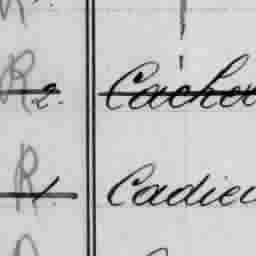 R 2. Cache
R 1. Cadieu